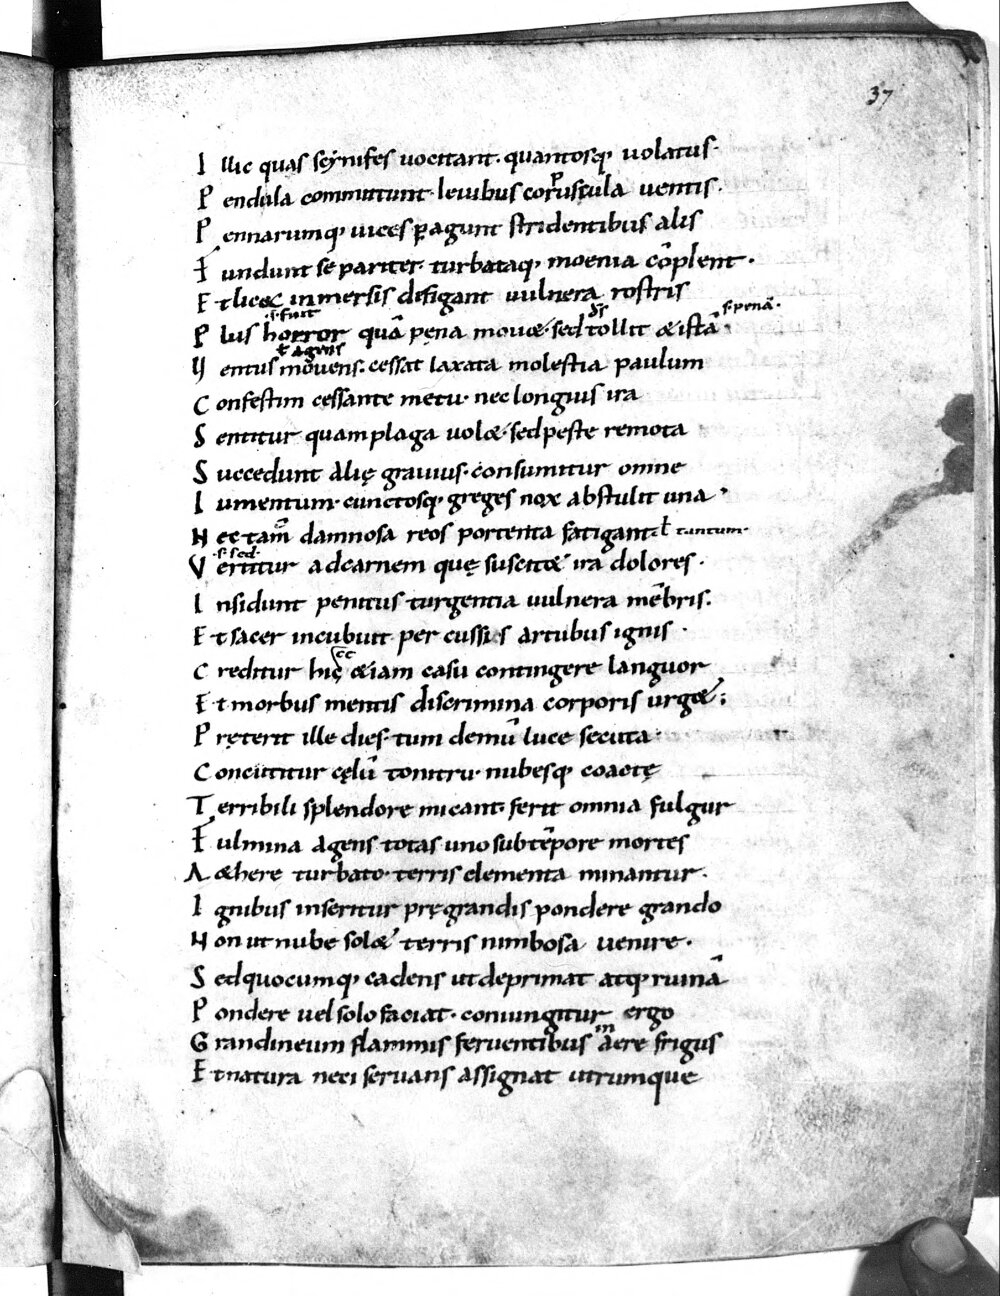 37
I llic quas scynifes uocitant· quantosq; uolatus·
P endula committunt· leuibus corpuscula uentis·
P ennarumq; uices ꝑagunt stridentibus alis
F undunt se pariter· turbataq; moenia cōplent·
E t licęc inmersis disfigant uulnera rostris
·s· fuit ds s· pena·
P lus horror quā pena mouet· sed tollit & istā·
ł agens
U entus mouens· cessat laxata molestia paulum
C onfestim cessante metu· nec longius ira
S entitur quam plaga uolet· sed peste remota
S uccedunt alię grauius· consumitur omne
I umentum· cunctosq; greges nox abstulit una·
N ec tam̄ damnosa reos portenta fatigant ł tantum·
·s· sed·
V ertitur ad carnem quę suscitet ira dolores·
I nsidunt penitus turgentia uulnera mēbris·
E t sacer incubuit per cussis artubus ignis·
cc
C reditur hic & iam casu contingere languor
E t morbus mentis discrimina corporis urget;
P reterit ille dies· tum demū luce secuta·
C oncutitur cęlū tonitru· nubesq; coactę
T erribili splendore micant· ferit omnia fulgur
F ulmina agens totas uno sub tēpore mortes
A &here turbato· terris elementa minantur·
I gnibus inseritur pręgrandis pondere grando
N on ut nube solet terris nimbosa uenire·
S ed quocumq; cadens ut deprimat atq; ruinā
P ondere uel solo faciat· coniungitur ergo
m
G randineum flammis feruentibus aere frigus
E t natura neci seruans assignat utrumque